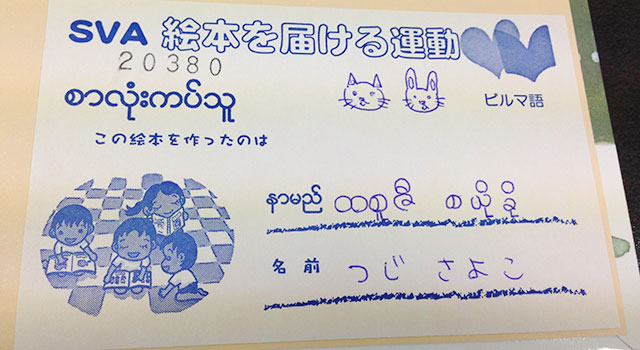 SVA 絵本を届ける運動
20380
စာလုံးကပ်သူ
ビルマ語
この絵本を作ったのは
နာမည် ထစူဇီ စယိုခို
名前 つじ さよこ